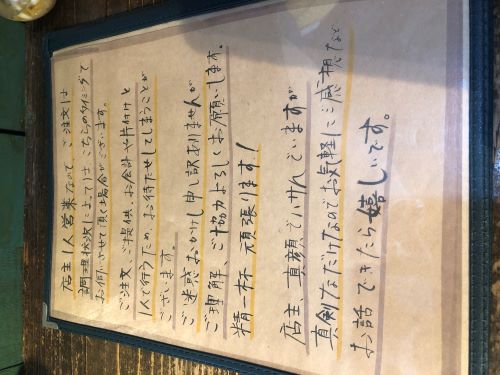 店主1人営業なので、ご注文は
調理状況によってはこちらのタイミングで
お伺いさせて頂く場合がございます。
ご注文、ご提供、お会計や片付けと
1人で行うため、お待たせしてしまうことが
ございます。
ご迷惑おかけし申し訳ありませんが
ご理解、ご協力よろしくお願いします。
精一杯 頑張ります!
店主、真顔でいけんでいますが
真剣なだけなのでお気軽にご感想など
お話できたら嬉しいです。